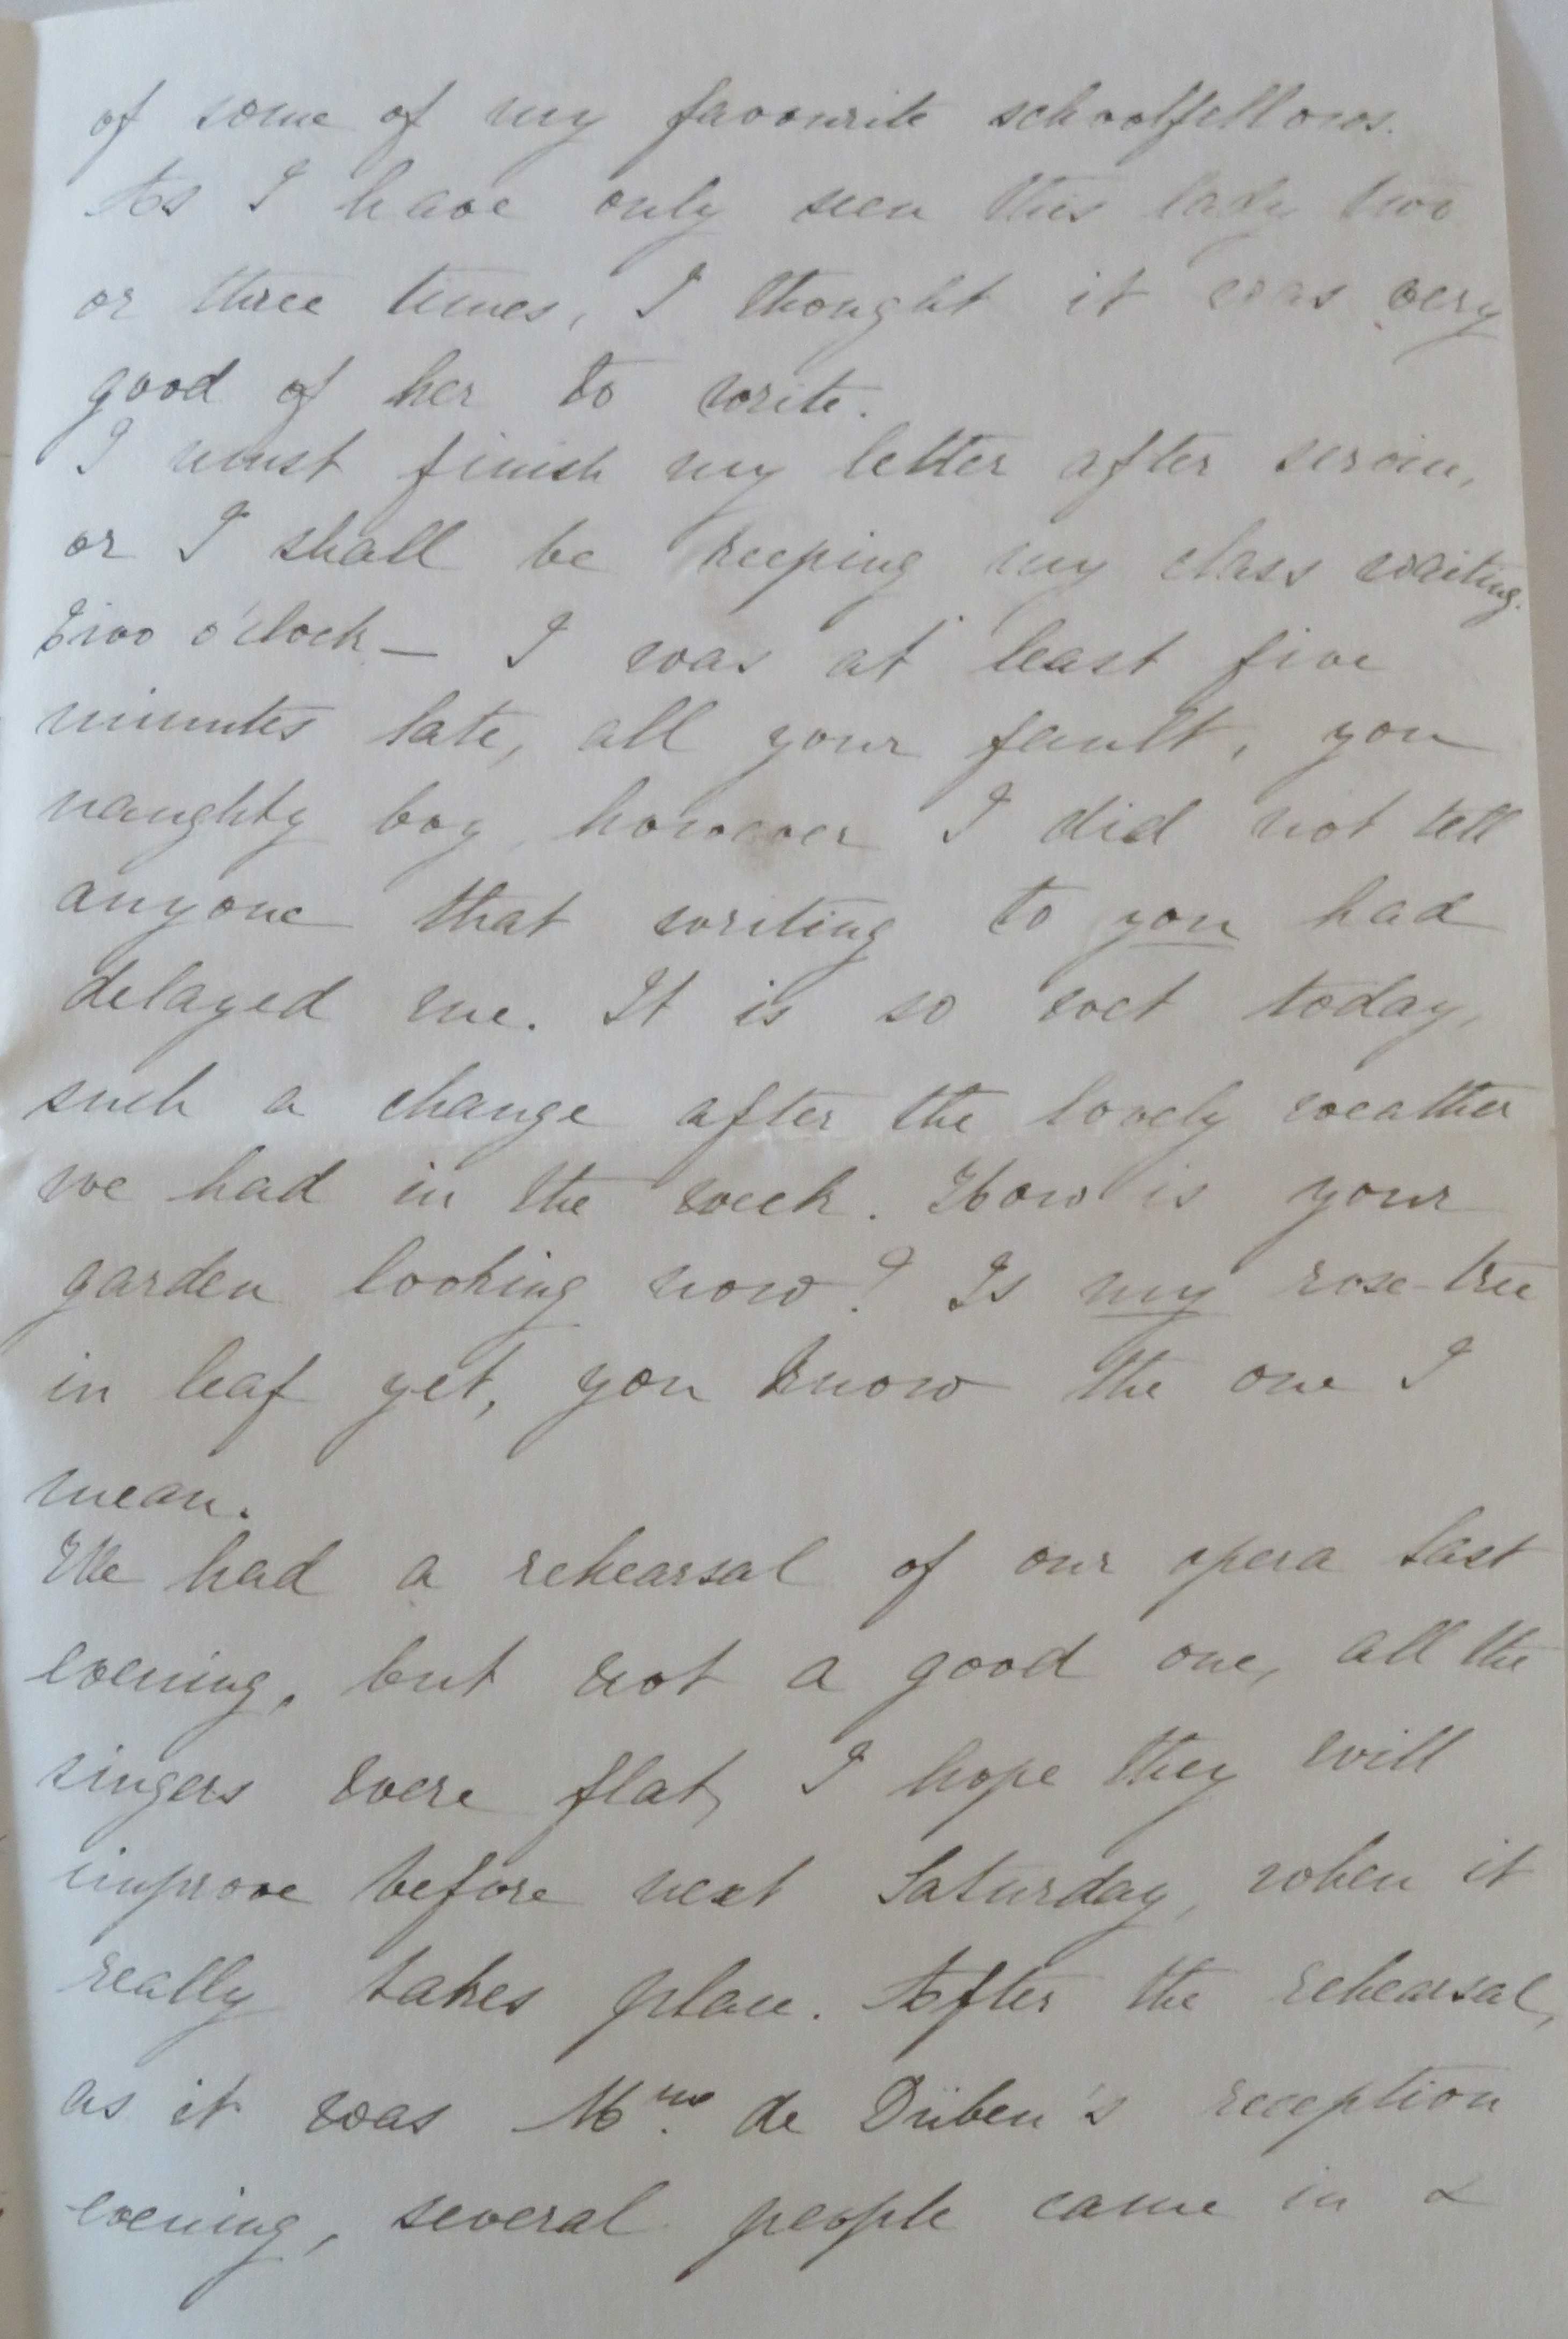 of some of my favourite schoolfellows.
As I have only seen this lady two
or three times, I thought it was very
good of her to write.
I must finish my letter after
or I shall be keeping my class waiting.
Two o'clock — I was at least five
minutes late, all your fault, you
naughty boy, however I did not tell
anyone that writing to you had
delayed me. It is so wet today,
such a change after the lovely weather
we had in the week. How is your
garden looking now? Is my rose-tree
in leaf yet, you know the one I
mean.
We had a rehearsal of our opera last
evening, but not a good one, all the
singers were flat, I hope they will
improve before next Saturday, when it
really takes place. After the rehearsal,
as it was Mme. de Düben's reception
evening, several people came in &